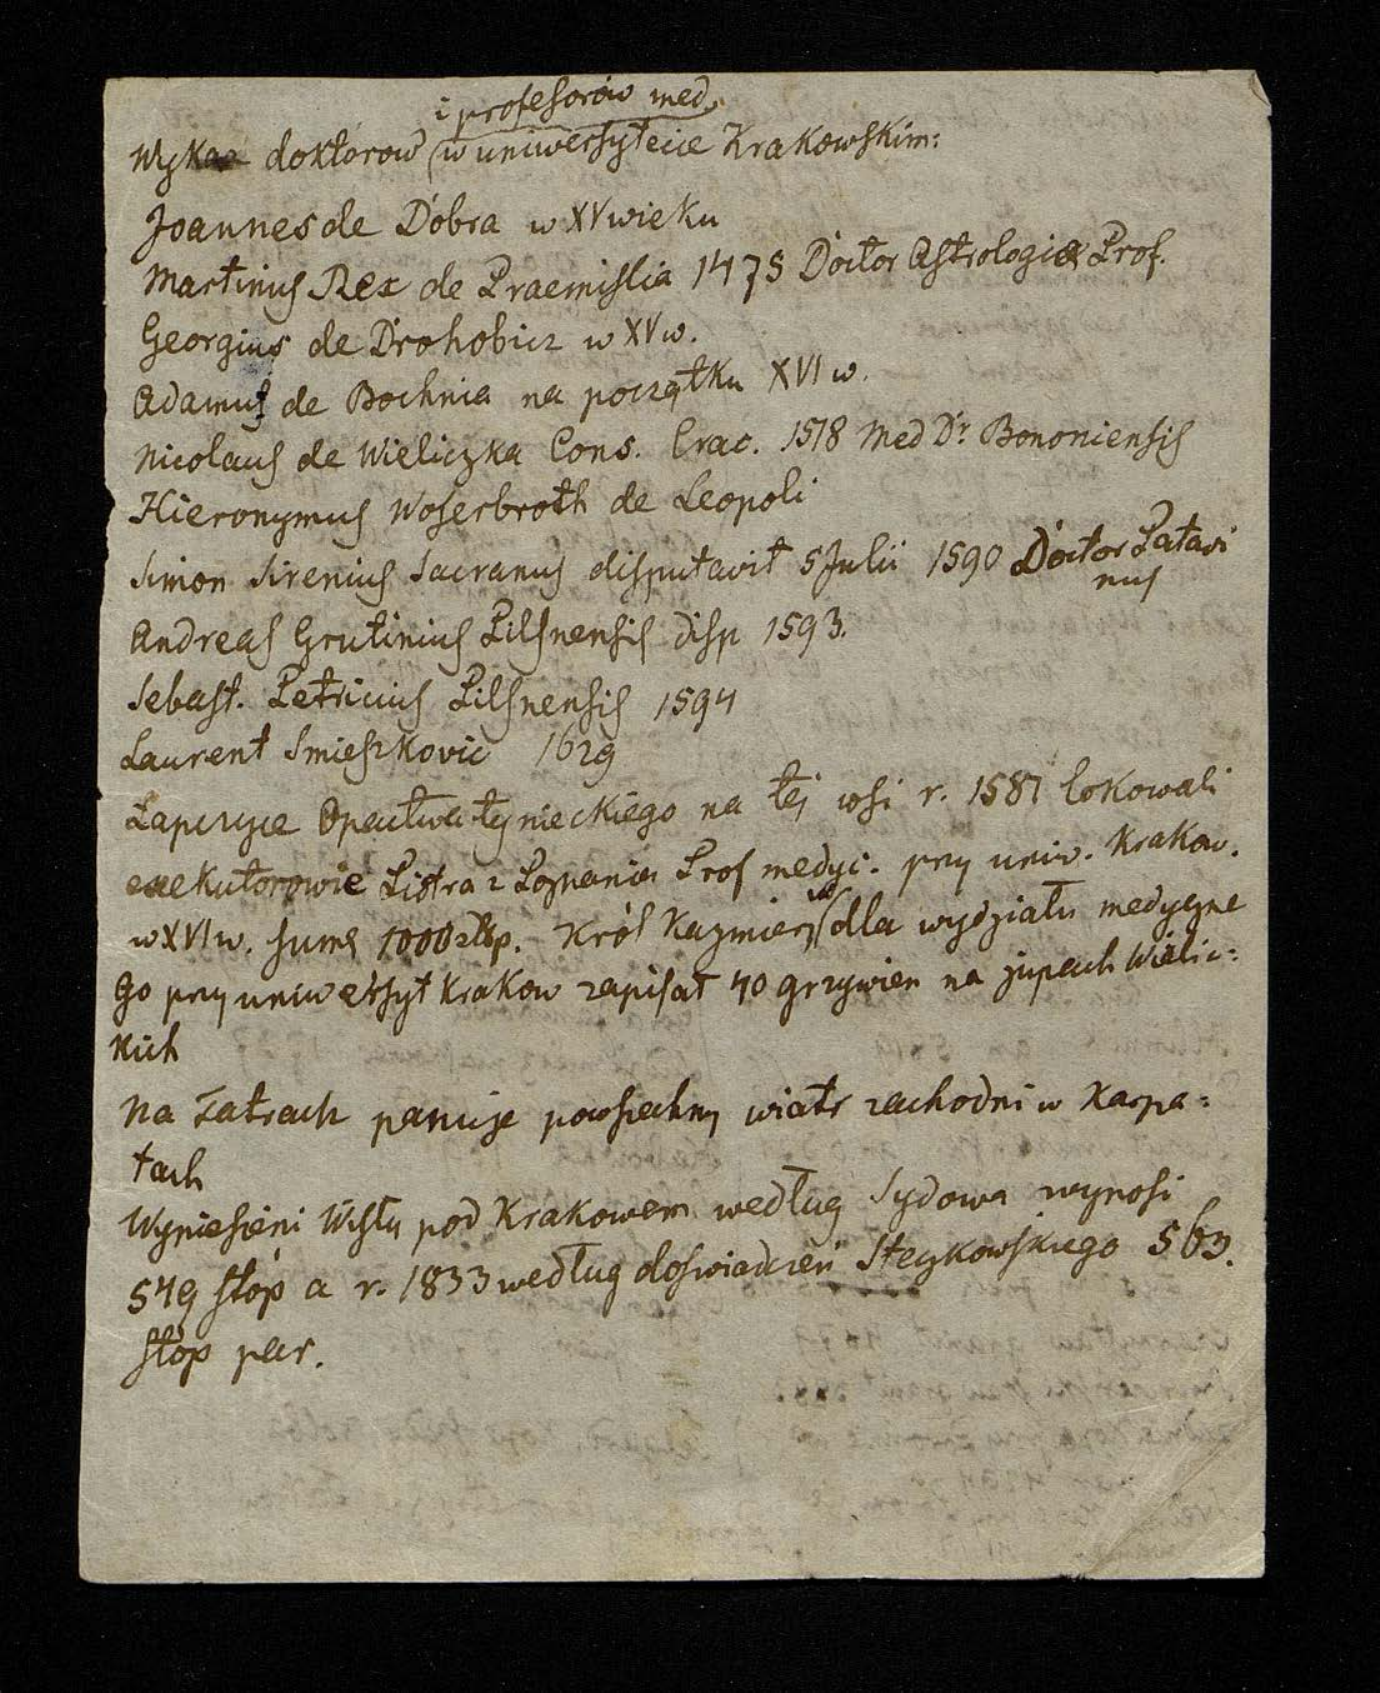 i profesorów med.
Wykaz doktorow w uniwersytecie Krakowskim:
Joannes de Dobra w XV wieku
Martinus Rex de Praemislia 1475 Doctor Astrologiæ Prof.
Georgius de Drohobicz w XV w.
Adamus de Bochnia na początku XVI w.
Nicolaus de Wieliczka Cons. Crac. 1518 Med Dr. Bononiensis
Hieronymus Woserbroth de Leopoli
Simon Sirenius Sacranus disputavit 5 Julii 1590 Doctor Patavi
nus
Andreas Grutinius Pilsnensis disp 1593.
Sebast. Petricius Pilsnensis 1594
Laurent Smieszkovic 1629
Łapczyce Opactwa tynieckiego na tej wsi r. 1587 lokowali
exekutorowie Piotra z Poznania Prof medyc. przy uniw. Krakow.
w XVI w. sumę 1000 złp. Król Kazmierz dla wydziału medyczne
go przy uniwersyt Krakow zapisał 40 grzywien na żupach Wielic:
kich
Na Tatrach panuje powszechny wiatr zachodni w Karpa:
tach
Wyniesieni Wisły pod Krakowem według Sydowa wynosi
549 stóp a r. 1833 według doswiadczeń Steczkowskiego 563.
stóp par.